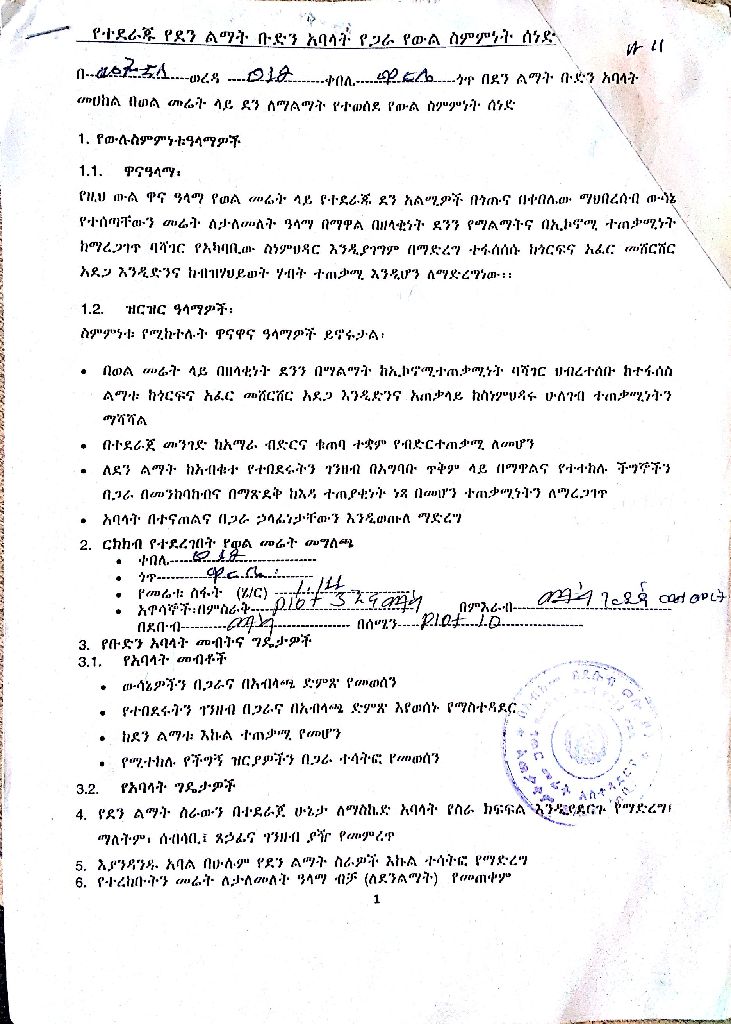 የተደራጁ የደን ልማት ቡድን አባላት የጋራ የውል ስምምነት ሰነድ
በ ወረዳ ቀበሌ ጎጥ በደን ልማት ቡድን አባላት
መሀከል በወል መሬት ላይ ደን ለማልማት የተወሰደ የውል ስምምነት ሰነድ
1. የውሉስምምነቱዓላማዎች
1.1. ዋናዓላማ፡
የዚህ ውል ዋና ዓላማ የወል መሬት ላይ የተደራጁ ደን አልሚዎች በጎጡና በቀበሌው ማህበረሰብ ውሳኔ
የተሰጣቸውን መሬት ለታለመለት ዓላማ በማዋል በዘላቂነት ደንን የማልማትና በኢኮኖሚ ተጠቃሚነት
ከማረጋገጥ ባሻገር የአካባቢው ስነምህዳር እንዲያገግም በማድረግ ተፋሰሰሱ ከጎርፍና አፈር መሸርሸር
አደጋ እንዲድንና ከብዝሃህይወት ሃብት ተጠቃሚ እንዲሆን ለማድረግነው፡፡
1.2. ዝርዝር ዓላማዎች፡
ስምምነቱ የሚከተሉት ዋናዋና ዓላማዎች ይኖሩታል፡
• በወል መሬት ላይ በዘላቂነት ደንን በማልማት ከኢኮኖሚተጠቃሚነት ባሻገር ህብረተሰቡ ከተፋሰስ
ልማቱ ከጎርፍና አፈር መሸርሸር አደጋ እንዲድንና አጠቃላይ ከስነምህዳሩ ሁለገብ ተጠቃሚነትን
ማሻሻል
• በተደራጀ መንገድ ከአማራ ብድርና ቁጠባ ተቋም የብድርተጠቃሚ ለመሆን
• ለደን ልማት ከአብቁተ የተበደሩትን ገንዘብ በአግባቡ ጥቅም ላይ በማዋልና የተተከሉ ችግኞችን
በጋራ በመንከባከብና በማጽደቅ ከእዳ ተጠያቂነት ነጻ በመሆን ተጠቃሚነትን ለማረጋገጥ
• አባላት በተናጠልና በጋራ ኃላፊነታቸውን እንዲወጡለ ማድረግ
2. ርክክብ የተደረገበት የወል መሬት መግለጫ
• ቀበሌ
• ጎጥ
• የመሬቱ ስፋት (ሄ/ር)
• አዋሳኞች፡በምስራቅ በምእራብ
በደቡብ በሰሜን
3. የቡድን አባላት መብትና ግዴታዎች
3.1. የአባላት መብቶች
• ውሳኔዎችን በጋራና በአብላጫ ድምጽ የመወሰን
• የተበደሩትን ገንዘብ በጋራና በአብላጫ ድምጽ እየወሰኑ የማስተዳደር
• ከደን ልማቱ እኩል ተጠቃሚ የመሆን
• የሚተከሉ የችግኝ ዝርያዎችን በጋራ ተሳትፎ የመወሰን
3.2. የአባላት ግዴታዎች
4. የደን ልማት ስራውን በተደራጀ ሁኔታ ለማስኬድ አባላት የስራ ክፍፍል እንዲያደርጉ የማድረግ፣
ማለትም፣ ሰብሳቢ፤ ጸኃፊና ገንዘብ ያዥ የመምረጥ
5. እያንዳንዱ አባል በሁሉም የደን ልማት ስራዎች እኩል ተሳትፎ የማድረግ
6. የተረከቡትን መሬት ለታለመለት ዓላማ ብቻ (ለደንልማት) የመጠቀም
1